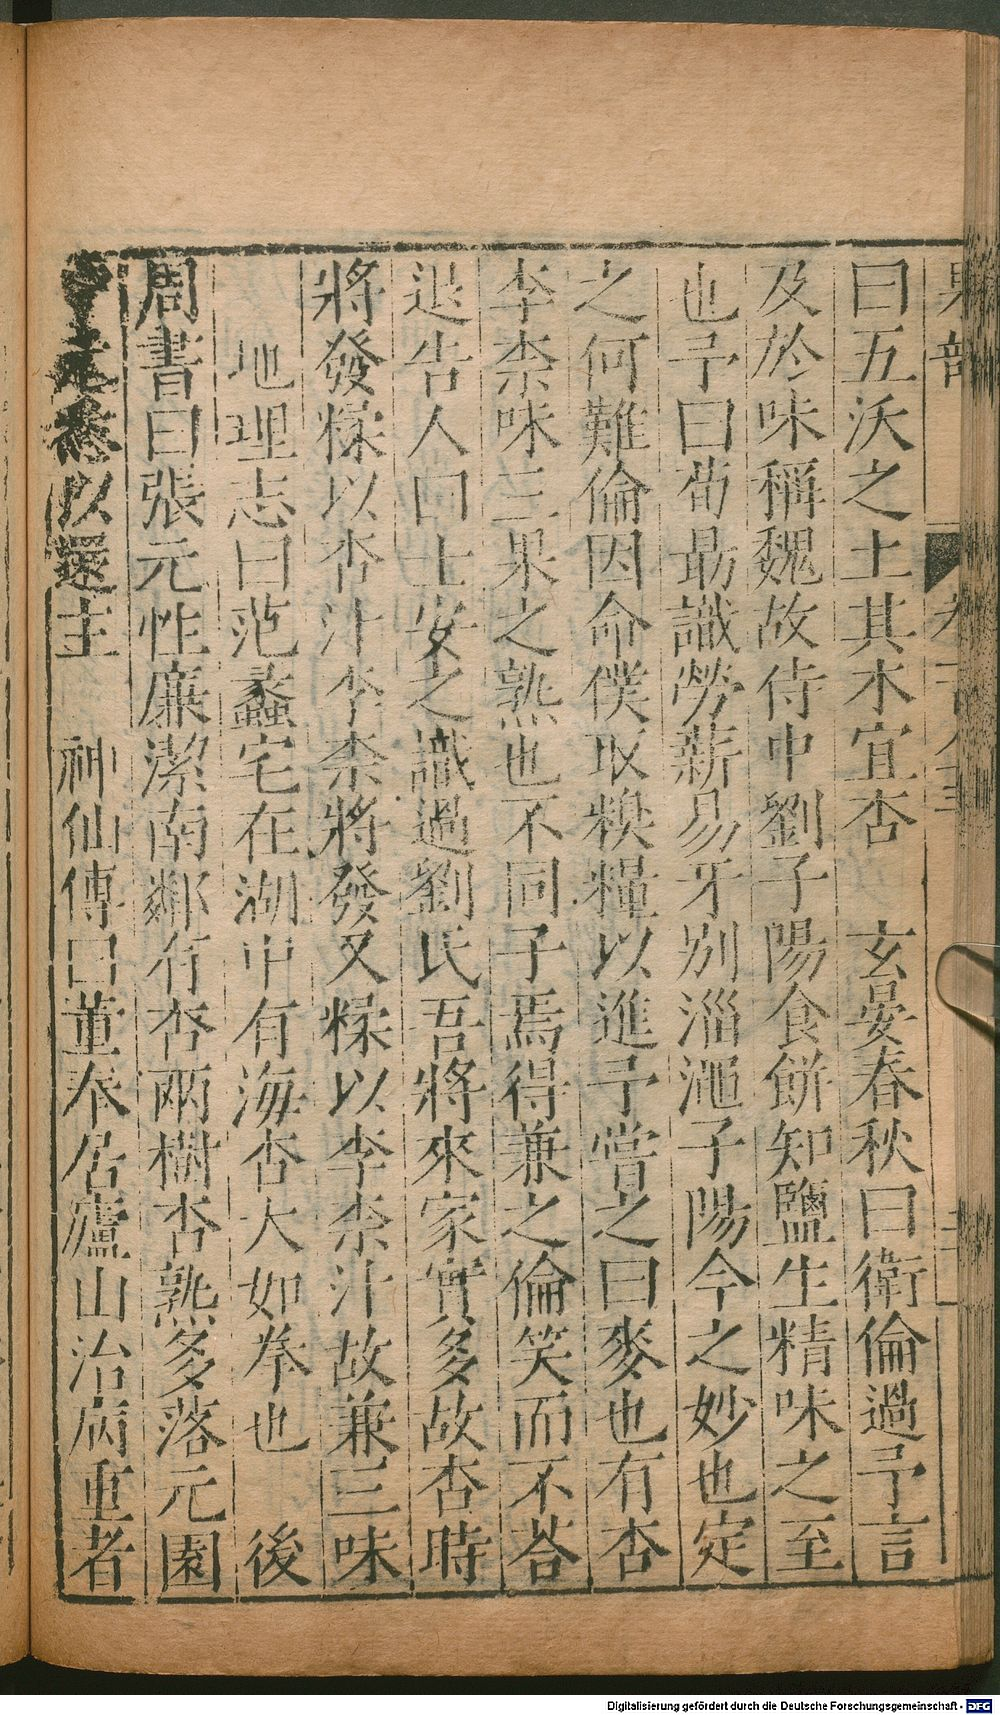 曰五沃之土其木宜杏　玄晏春秋曰衛倫過予言
及於味稱魏故侍中劉子陽食餅知鹽生精味之至
也予曰荀勗識勞薪易牙別淄澠子陽今之妙也定
之何難倫因命僕取糗糧以進予嘗之曰麥也有杏
李柰味三果之熟也不同子焉得兼之倫笑而不荅
退告人曰士安之識過劉氏吾將來家實多故杏時
將發糅以杏汁李柰將發又糅以李柰汁故兼三味
地理志曰范蠡宅在湖中有海杏大如拳也　後
周書曰張元性廉潔南鄰有杏兩樹杏熟多落元園
悉以還主　神仙傳曰董奉居廬山治病重者
Digitalisierung gefördert durch die Deutsche Forschungsgemeinschaft - DFG